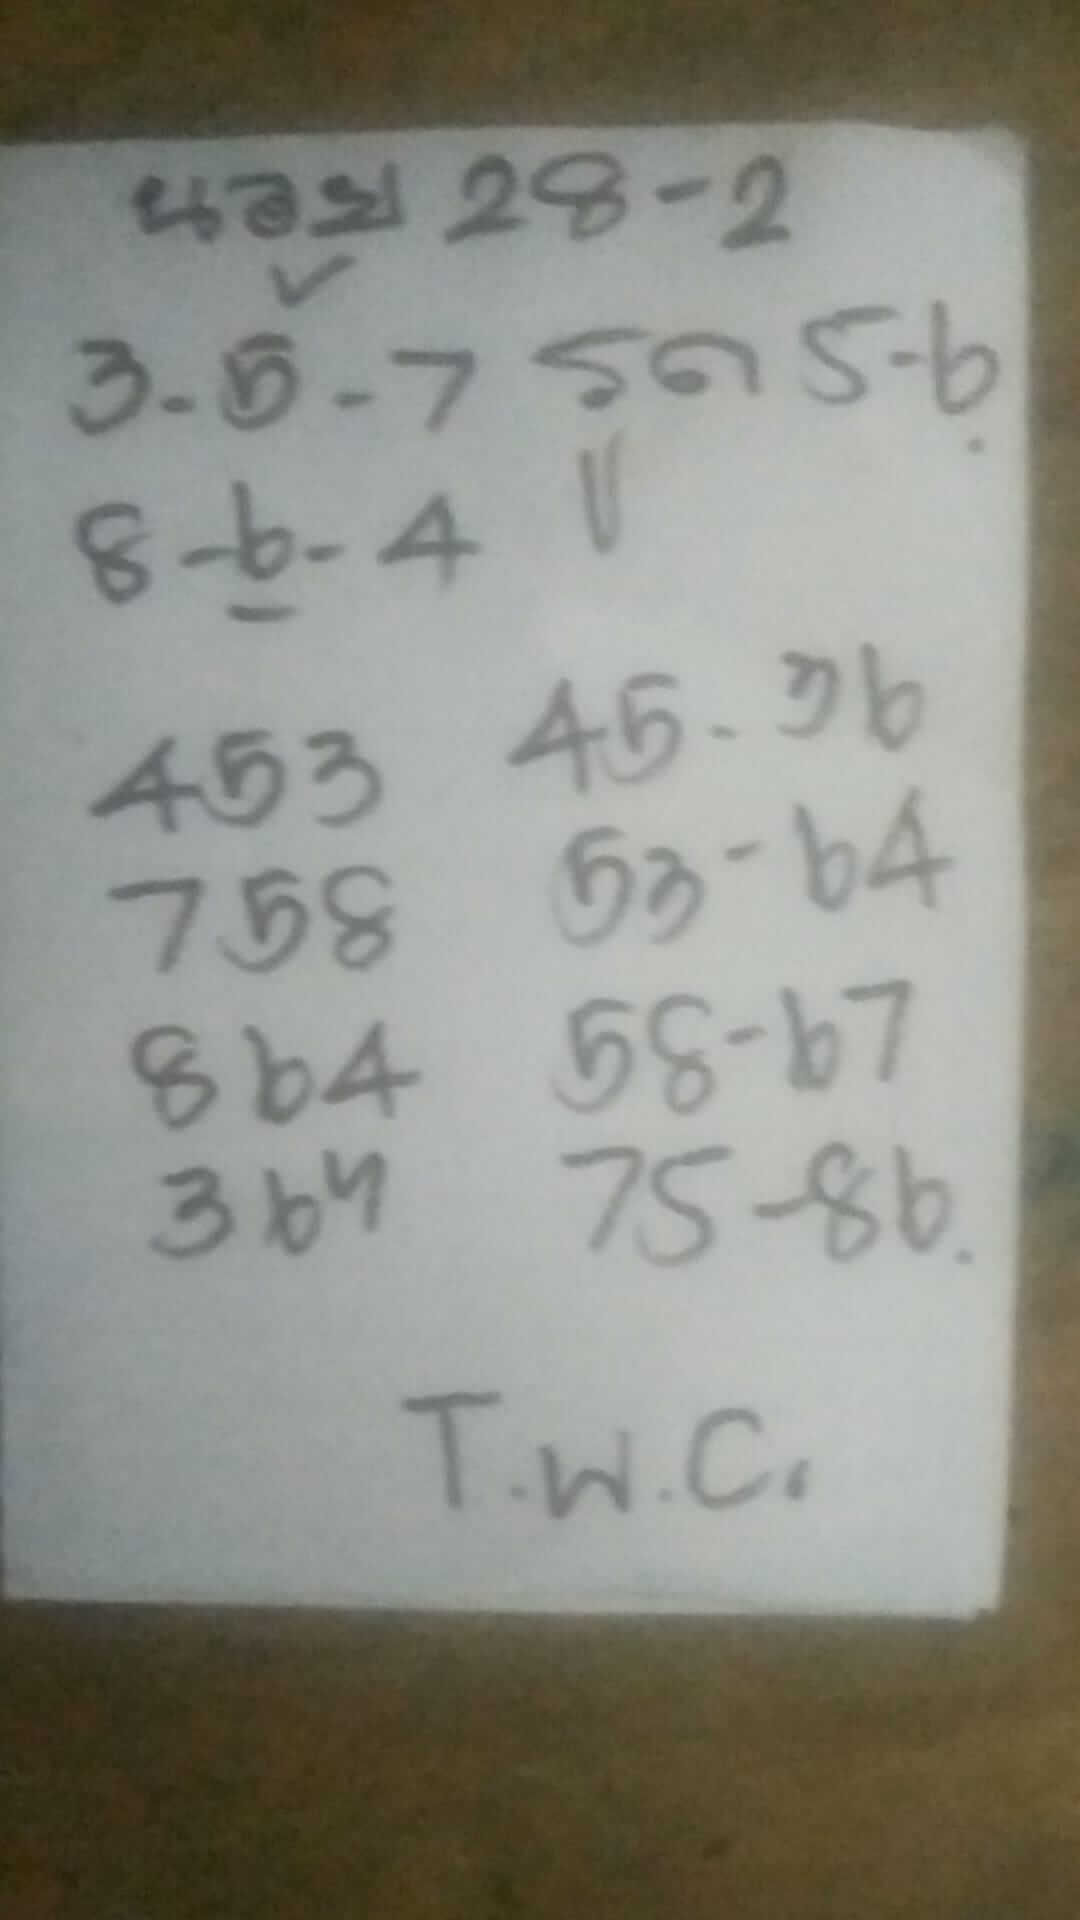 นอย 28-2
3-5-7 รูด 5-6.
8-6-4
453 45-36
758 53-64
864 58-67
364 75-86.
T.W.C.